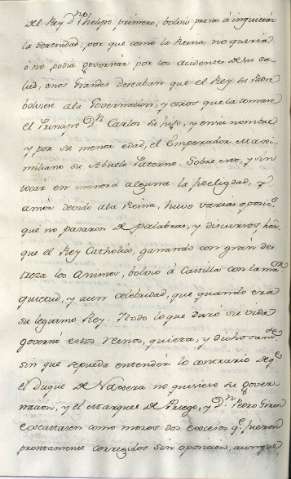 del Rey Dn. Phelipe primero, bolvió para á inquietar
la serenidad, por que como la Reina no queria
ó no podia governar por los accidentes de su sa-
lud, unos Grandes deseaban que el Rey su Padre
bolviese ala Governacion, y otros que la
el Principe Dn. Carlos su hijo, y en su nombre
y por su menor edad, el Emperador Maxi-
miliano su Abuelo Paterno. Sobre esto, y sin
tocar en manera alguna la fidelidad, y
amor devido ala Reina, huvo varias
que no pasaron de palabras, y discursos, hasta
que el Rey Catholico, ganando con gran des-
treza los animos, bolvió a Castilla con la misma
quietud, y aun celebridad, que quando era
su legitimo Rey. Todo lo que duró su vida
governó estos Reinos, quieta, y
sin que se pueda entender lo contrario de qe.
el Duque de Naxera no quisiese su gover-
nacion, y el Marques de Priego, y Dn. Pedro
como mozos dos excesos qe. fueron
promptamente corregidos sin oposicion, aunque